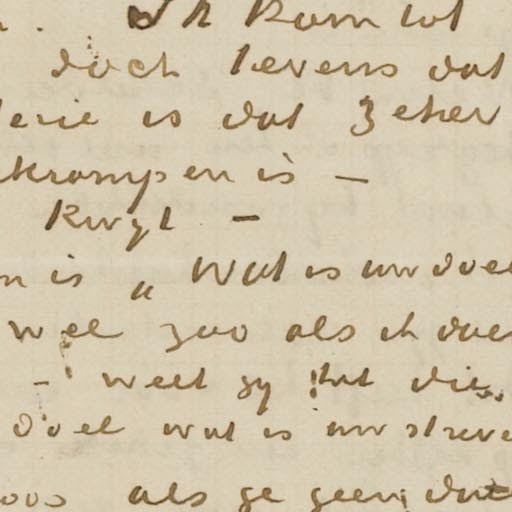 Ik kom tot
doch tevens dat
erie is dat zeker
krompen is —
kwyt —
n is „ Wat is uw doel
wel zoo als ik doe
— weet gy tot die
doel wat is uw streve
oos als ge geen doel